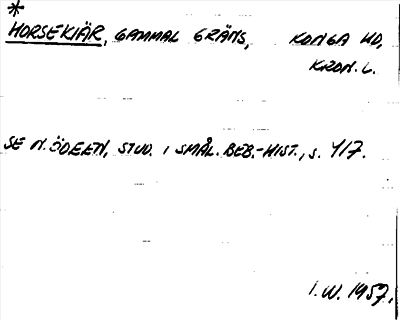 *
HORSEKIÄR, GAMMAL GRÄNS, KONGA HD,
KRON. L.
SE N. ÖDEEN, STUD. I SMÅL. BEB.-HIST., S. 417.
I. W. 1957.